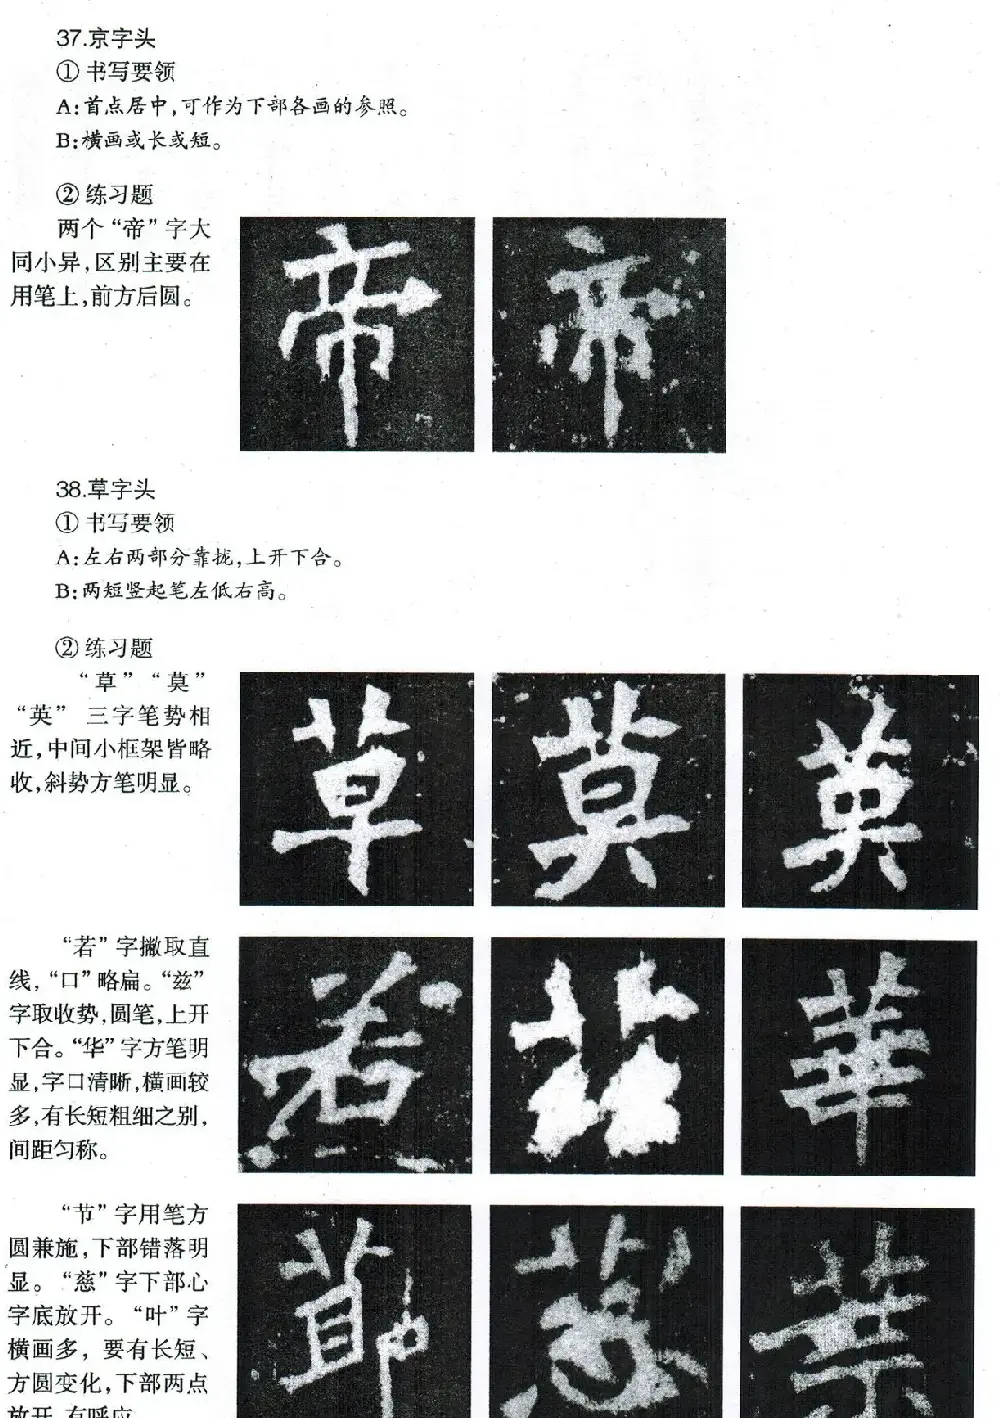 37.京字头
① 书写要领
A:首点居中,可作为下部各画的参照。
B:横画或长或短。
② 练习题
两个“帝”字大
同小异,区别主要在
用笔上,前方后圆。
帝 帝
38.草字头
① 书写要领
A:左右两部分靠拢,上开下合。
B:两短竖起笔左低右高。
② 练习题
“草”“莫”
“英” 三字笔势相
近,中间小框架皆略
收,斜势方笔明显。
草 莫 英
“若”字撇取直
线,“口”略扁。“兹”
字取收势,圆笔,上开
下合。“华”字方笔明
显,字口清晰,横画较
多,有长短粗细之别,
间距匀称。
若 兹 華
“节”字用笔方
圆兼施,下部错落明
显。“慈”字下部心
字底放开。“叶”字
横画多,要有长短、
方圆变化,下部两点
放开,有呼应